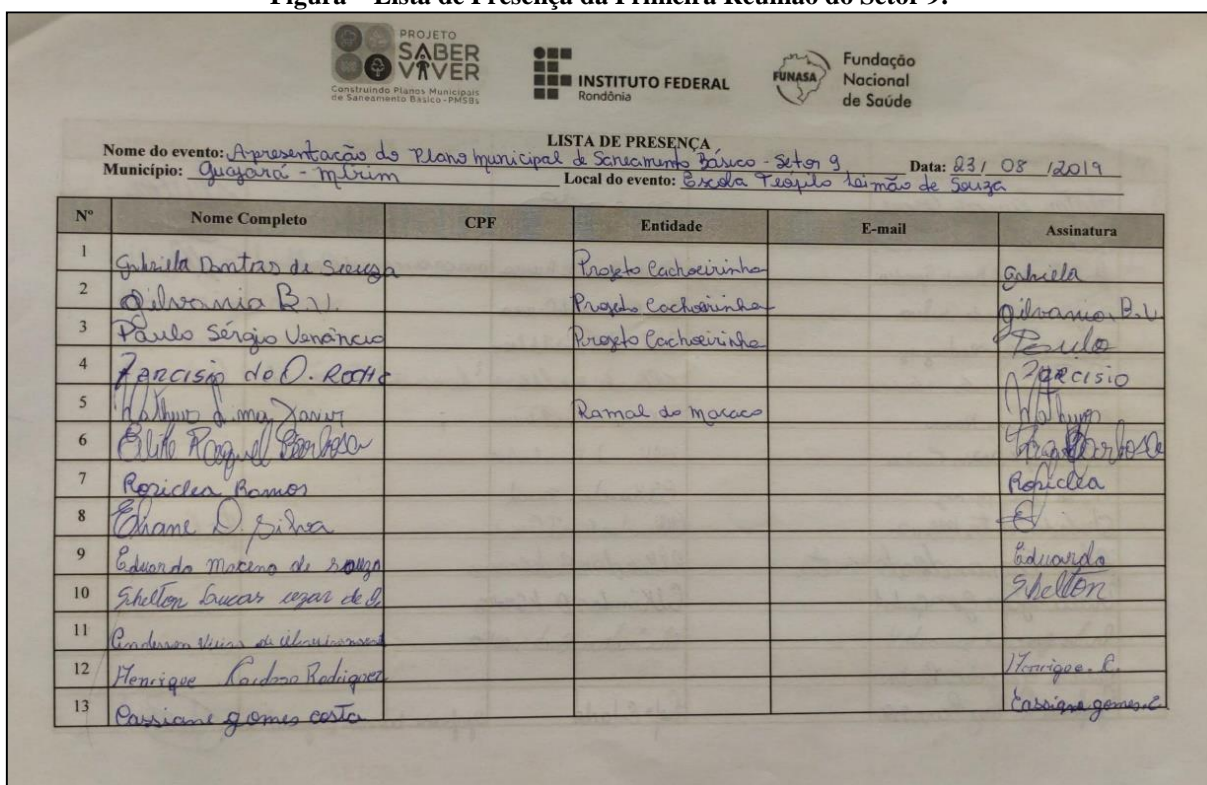 Figura – Lista de Presença da Primeira Reunião do Setor 9.
PROJETO
SABER
VIVER
Construindo Planos Municipais
de Saneamento Básico - PMSBs
INSTITUTO FEDERAL
Rondônia
FUNASA
Fundação
Nacional
de Saúde
LISTA DE PRESENÇA
Nome do evento: Apresentação do Plano municipal de Saneamento Básico - Setor 9 Data: 23/ 08 /2019
Município: Guajará - mirim Local do evento: Escola Teófilo de Souza
Nº Nome Completo CPF Entidade E-mail Assinatura
1 Gabriela Dantas de Souza Projeto Cachoeirinha Gabriela
2 Gilvania B.V. Projeto Cachoeirinha Gilvania B.V.
3 Paulo Sérgio Venâncio Projeto Cachoeirinha Paulo
4 Tarcisio de O. Rocha Tarcisio
5 Lima Ramal do macaco
6 Raquel Barbosa Barbosa
7 Rosiclea Ramos Rosiclea
8 Eliane D. Silva
9 Eduardo Moreno de Souza Eduardo
10 Shelton Lucas cezar de O. Shelton
11 Anderson Vieira de
12 Henrique Cardoso Rodriguez Henrique. C.
13 Cassiane gomes costa Cassiane gomes.C